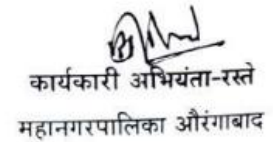 कार्यकारी अभियंता-रस्ते
महानगरपालिका औरंगाबाद